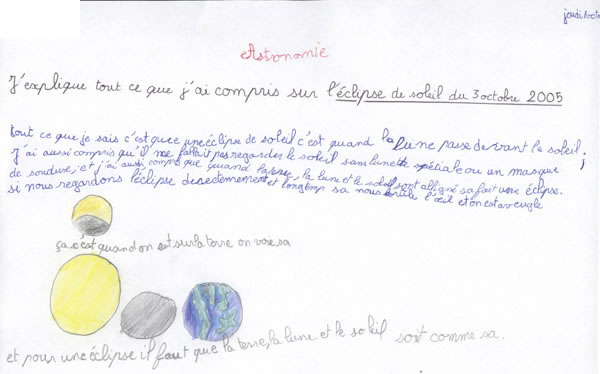 jeudi 6 octo
Astronomie
J'explique tout ce que j'ai compris sur l'éclipse de soleil du 3 octobre 2005
tout ce que je sais c'est que une éclipse de soleil c'est quand la lune passe devant le soleil.
J'ai aussi compris qu'il ne fallait pas regarder le soleil sans lunette spéciale ou un masque
de soudure, et j'ai aussi compris que quand la terre, la lune et le soleil sont aligné sa fait une éclipse.
si nous regardons l'éclipse directement et longtemp sa nous brûle l'œil et on est aveugle
ça c'est quand on est sur la terre on voie sa
et pour une éclipse il faut que la terre, la lune et le soleil soit comme sa.